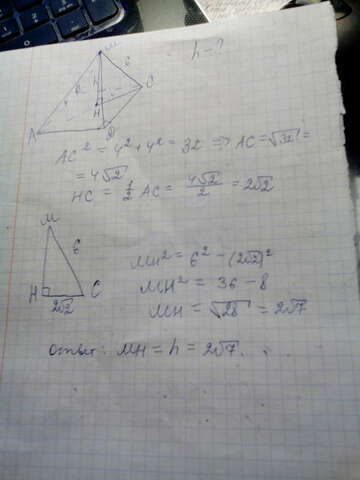 M
h - ?
6
h
C
H
A
D
AC² = 4² + 4² = 32 ⇒ AC = √32 =
= 4√2
HC = 1/2 AC = 4√2/2 = 2√2
M
6
H
C
2√2
MH² = 6² - (2√2)²
MH² = 36 - 8
MH = √28 = 2√7
Ответ: MH = h = 2√7.